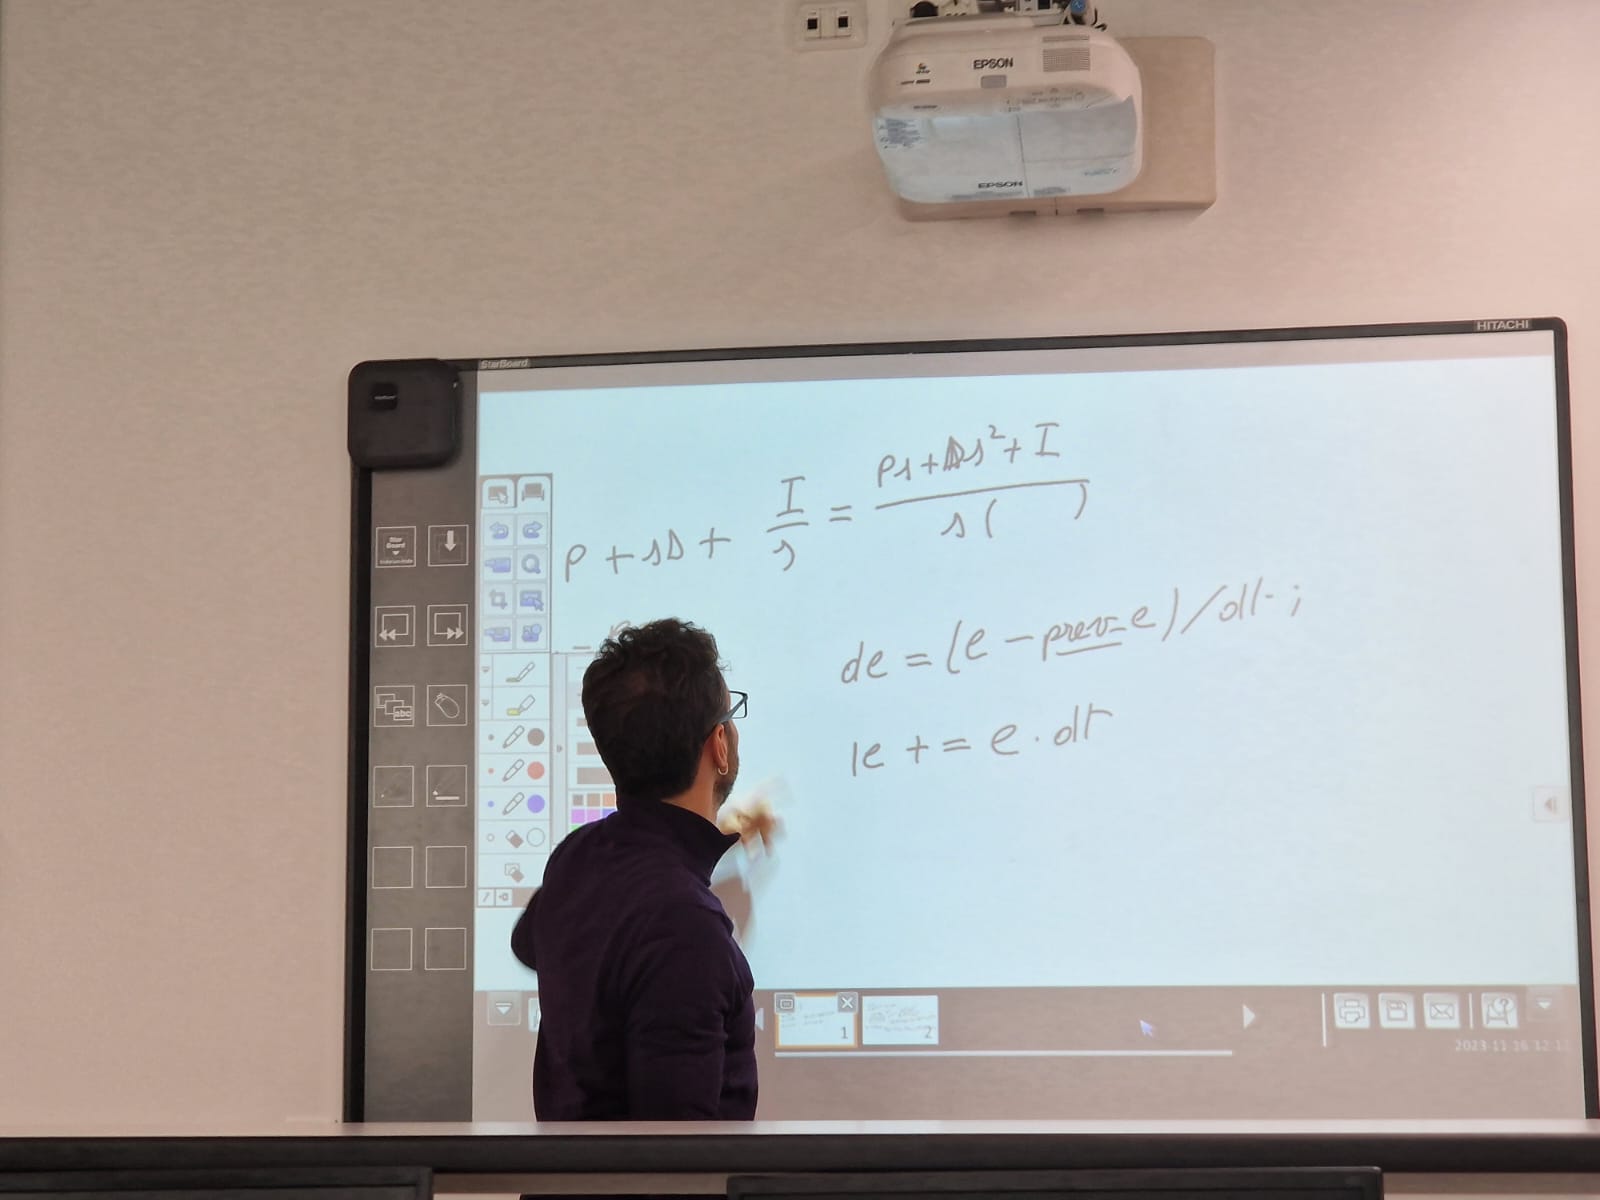 EPSON
EPSON
HITACHI
StarBoard
P + sD + I/s = Ps + Ds² + I / s( )
de = (e - prev_e) / dt ;
Ie += e . dt
Star Board
abc
1
2
2023-11-16 12:1